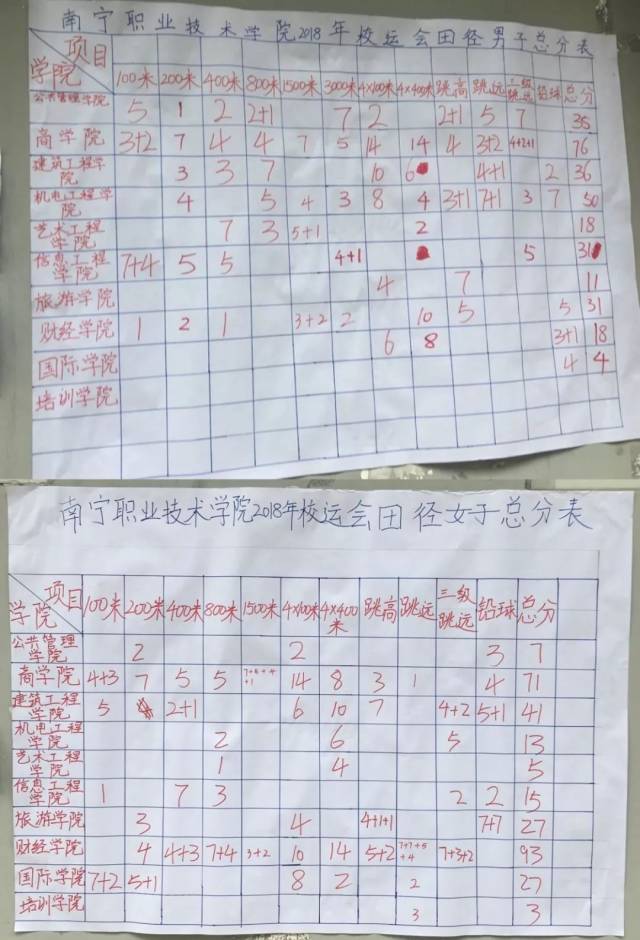 南宁职业技术学院2018年校运会田径男子总分表
项目
学院 100米 200米 400米 800米 1500米 3000米 4x100米 4x400米 跳高 跳远 三级跳远 铅球 总分
公共管理学院 5 1 2 2+1 7 2 2+1 5 7 35
商学院 3+2 7 4 4 7 5 14 14 4 3+2 4+2+1 76
建筑工程学院 3 3 7 10 6 4+1 2 36
机电工程学院 4 5 4 3 8 4 3+1 7+1 3 7 50
艺术工程学院 7 3 5+1 2 18
信息工程学院 7+4 5 5 4+1 5 31
旅游学院 4 7 11
财经学院 1 2 1 3+2 2 10 5 5 31
国际学院 6 8 3+1 18
培训学院 4 4
南宁职业技术学院2018年校运会田径女子总分表
项目
学院 100米 200米 400米 800米 1500米 4x100米 4x400米 跳高 跳远 三级跳远 铅球 总分
公共管理学院 2 2 3 7
商学院 4+3 7 5 5 14 8 3 1 4 71
建筑工程学院 5 2+1 6 10 7 4+2 5+1 41
机电工程学院 2 6 5 13
艺术工程学院 1 4 5
信息工程学院 1 7 3 2 2 15
旅游学院 3 4 4+1+1 7+7 27
财经学院 4 4+3 7+4 3+2 10 14 5+2 7+7+5+4 7+3+2 93
国际学院 7+2 5+1 8 2 2 27
培训学院 3 3